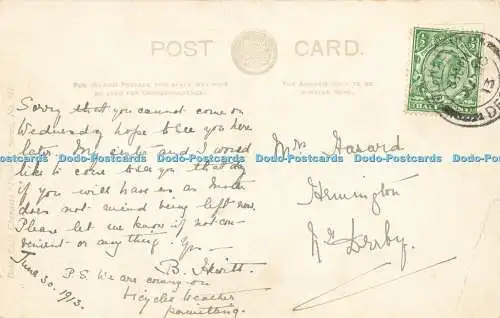 POST CARD.
FOR INLAND POSTAGE THIS SPACE MAY NOW BE USED FOR CORRESPONDENCE.
THE ADDRESS ONLY TO BE WRITTEN HERE.
Sorry that you cannot come on
Wednesday hope to see you here
later. My and I would
like to come & see you that day
if you will have us as Mother
does not mind being left now.
Please let us know if not con-
venient or anything. Yrs —
B. Hewitt.
June 30. 1913.
P.S. We are coming on
bicycles weather
permitting.
Mrs Hasard
Hemington
Nr Derby.
Dodo-Postcards Dodo-Postcards Dodo-Postcards Dodo-Postcards Dodo-Postcards